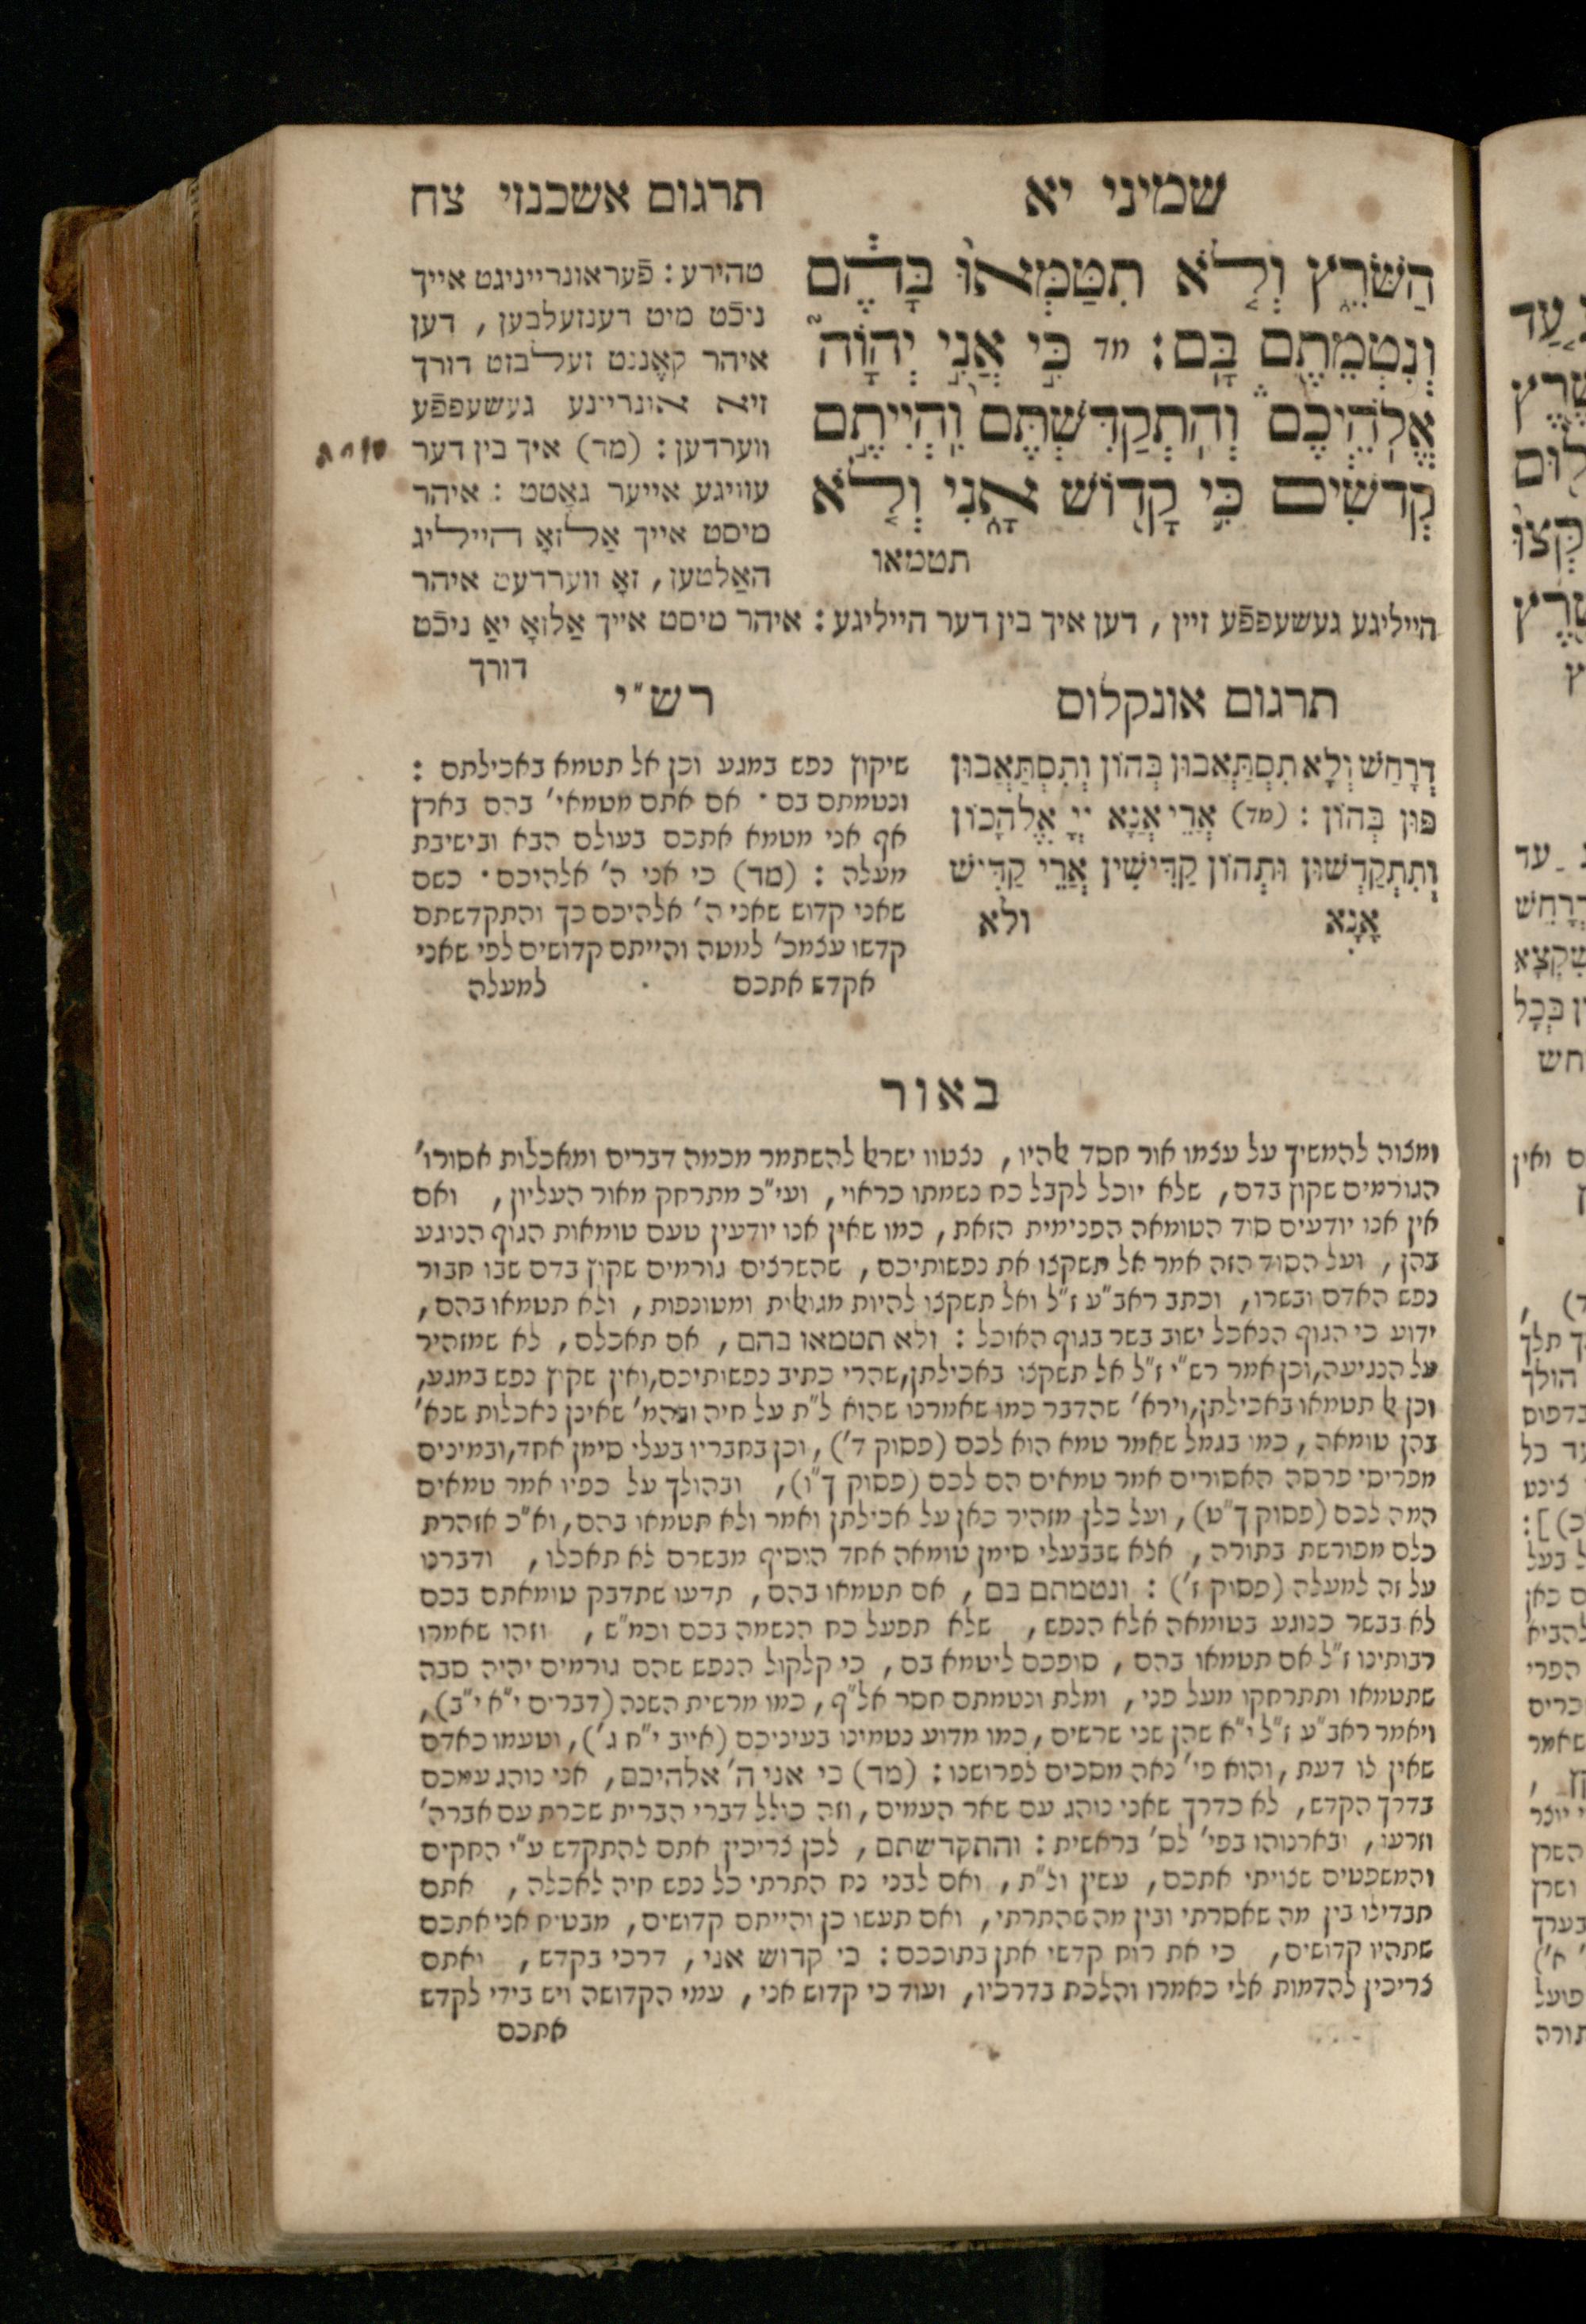 שמיני יא
תרגום אשכנזי צח
הַשֹּׁרֵ֑ץ וְלֹ֤א תִטַּמְּאוּ֙ בָּהֶ֔ם
וְנִטְמֵתֶ֖ם בָּֽם׃ מד כִּ֣י אֲנִ֣י יְהוָה֮
אֱלֹֽהֵיכֶם֒ וְהִתְקַדִּשְׁתֶּם֙ וִֽהְיִיתֶ֣ם
קְדֹשִׁ֔ים כִּ֥י קָד֖וֹשׁ אָ֑נִי וְלֹ֤א
תטמאו
טהירע: פֿעראונרייניגט אייך
ניכֿט מיט דענזעלבען, דען
איהר קאֶננט זעלבזט דורך
זיא אונריינע געשעפפֿע
ווערדען: (מד) איך בין דער
עוויגע אייער גאָטט: איהר
מיסט אייך אַלזאָ הייליג
האַלטען, זאָ ווערדעט איהר
הייליגע געשעפפֿע זיין, דען איך בין דער הייליגע: איהר מיסט אייך אַלזאָ יאַ ניכֿט
דורך
תרגום אונקלוס
דְּרָחֵשׁ וְלָא תִסְתַּאֲבוּן בְּהוֹן וְתִסְתַּאֲבוּן
פּוּן בְּהוֹן: (מד) אֲרֵי אֲנָא יְיָ אֱלָהָכוֹן
וְתִתְקַדְּשׁוּן וּתְהוֹן קַדִּישִׁין אֲרֵי קַדִּישׁ
אֲנָא ולא
רש"י
שיקוץ נפש במגע וכן אל תטמא באכילתם:
ונטמתם בם· אם אתם מטמאי' בהם בארץ
אף אני מטמא אתכם בעולם הבא ובישיבת
מעלה: (מד) כי אני ה' אלהיכם· כשם
שאני קדוש שאני ה' אלהיכם כך והתקדשתם
קדשו עצמכ' למטה והייתם קדושים לפי שאני
אקדש אתכם למעלה
באור
ומצוה להמשיך על עצמו אור חסד אלהיו, נצטוו ישראל להשתמר מכמה דברים ומאכלות אסורו'
הגורמים שקוץ בדם, שלא יוכל לקבל כח נשמתו כראוי, ועי"כ מתרחק מאור העליון, ואם
אין אנו יודעים סוד הטומאה הפנימית הזאת, כמו שאין אנו יודעין טעם טומאות הגוף הנוגע
בהן, ועל הסוד הזה אמר אל תשקצו את נפשותיכם, שהשרצים גורמים שקוץ בדם שבו חבור
נפש האדם ובשרו, וכתב ראב"ע ז"ל ואל תשקצו להיות מגואלות ומטונפות, ולא תטמאו בהם,
ידוע כי הגוף הנאכל ישוב בשר בגוף האוכל: ולא תטמאו בהם, אם תאכלם, לא שמזהיר
על הנגיעה, וכן אמר רש"י ז"ל אל תשקצו באכילתן, שהרי כתיב נפשותיכם, ואין שקוץ נפש במגע,
וכן אל תטמאו באכילתן, וירא' שהדבר כמו שאמרנו שהוא ל"ת על חיה ובהמ' שאינן נאכלות שנא'
בהן טומאה, כמו בגמל שאמר טמא הוא לכם (פסוק ד'), וכן בחבריו בעלי סימן אחד, ובמינים
מפריסי פרסה האסורים אמר טמאים הם לכם (פסוק ך"ו), ובהולך על כפיו אמר טמאים
המה לכם (פסוק ך"ט), ועל כלן מזהיר כאן על אכילתן ואמר ולא תטמאו בהם, וא"כ אזהרת
כלם מפורשת בתורה, אלא שבבעלי סימן טומאה אחד הוסיף מבשרם לא תאכלו, ודברנו
על זה למעלה (פסוק ז'): ונטמתם בם, אם תטמאו בהם, תדעו שתדבק טומאתם בכם
לא בבשר כנוגע בטומאה אלא הנפש, שלא תפעל כח הנשמה בכם וכמ"ש, וזהו שאמרו
רבותינו ז"ל אם תטמאו בהם, סופכם ליטמא בם, כי קלקול הנפש שהם גורמים יהיה סבה
שתטמאו ותתרחקו מעל פני, ומלת ונטמתם חסר אל"ף, כמו מרשית השנה (דברים י"א י"ב),
ויאמר ראב"ע ז"ל י"א שהן שני שרשים, כמו מדוע נטמינו בעיניכם (איוב י"ח ג'), וטעמו כאדם
שאין לו דעת, והוא פי' נאה מסכים לפרושנו: (מד) כי אני ה' אלהיכם, אני נוהג עמכם
בדרך הקדש, לא כדרך שאני נוהג עם שאר העמים, וזה כולל דברי הברית שכרת עם אברה'
וזרעו, ובארנוהו בפי' לס' בראשית: והתקדשתם, לכן צריכין אתם להתקדש ע"י החקים
והמשפטים שצויתי אתכם, עשין ול"ת, ואם לבני נח התרתי כל נפש חיה לאכלה, אתם
תבדילו בין מה שאסרתי ובין מה שהתרתי, ואם תעשו כן והייתם קדושים, מבטיח אני אתכם
שתהיו קדושים, כי את רוח קדשי אתן בתוככם: כי קדוש אני, דרכי בקדש, ואתם
צריכין להדמות אלי כאמרו והלכת בדרכיו, ועוד כי קדוש אני, עמי הקדושה ויש בידי לקדש
אתכם